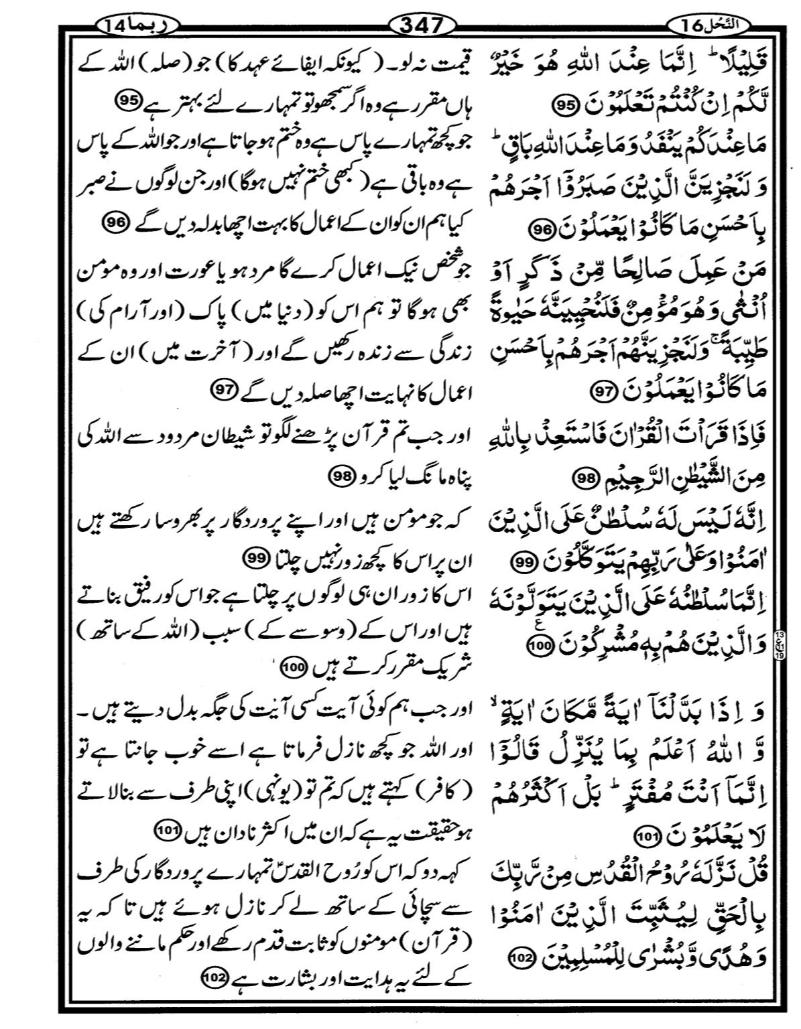 النَّحْل16
347
ربما14
قَلِيْلًا ؕ اِنَّمَا عِنْدَ اللّٰهِ هُوَ خَيْرٌ
لَّكُمْ اِنْ كُنْتُمْ تَعْلَمُوْنَ 95
مَا عِنْدَكُمْ يَنْفَدُ وَمَا عِنْدَ اللّٰهِ بَاقٍ ؕ
وَلَنَجْزِيَنَّ الَّذِيْنَ صَبَرُوْۤا اَجْرَهُمْ
بِاَحْسَنِ مَا كَانُوْا يَعْمَلُوْنَ 96
مَنْ عَمِلَ صَالِحًا مِّنْ ذَكَرٍ اَوْ
اُنْثٰى وَهُوَ مُؤْمِنٌ فَلَنُحْيِيَنَّهٗ حَيٰوةً
طَيِّبَةً ۚ وَلَنَجْزِيَنَّهُمْ اَجْرَهُمْ بِاَحْسَنِ
مَا كَانُوْا يَعْمَلُوْنَ 97
فَاِذَا قَرَاْتَ الْقُرْاٰنَ فَاسْتَعِذْ بِاللّٰهِ
مِنَ الشَّيْطٰنِ الرَّجِيْمِ 98
اِنَّهٗ لَيْسَ لَهٗ سُلْطٰنٌ عَلَى الَّذِيْنَ
اٰمَنُوْا وَعَلٰى رَبِّهِمْ يَتَوَكَّلُوْنَ 99
اِنَّمَا سُلْطٰنُهٗ عَلَى الَّذِيْنَ يَتَوَلَّوْنَهٗ
وَالَّذِيْنَ هُمْ بِهٖ مُشْرِكُوْنَ 100
وَ اِذَا بَدَّلْنَاۤ اٰيَةً مَّكَانَ اٰيَةٍ ۙ
وَّ اللّٰهُ اَعْلَمُ بِمَا يُنَزِّلُ قَالُوْۤا
اِنَّمَاۤ اَنْتَ مُفْتَرٍ ؕ بَلْ اَكْثَرُهُمْ
لَا يَعْلَمُوْنَ 101
قُلْ نَزَّلَهٗ رُوْحُ الْقُدُسِ مِنْ رَّبِّكَ
بِالْحَقِّ لِيُثَبِّتَ الَّذِيْنَ اٰمَنُوْا
وَهُدًى وَّبُشْرٰى لِلْمُسْلِمِيْنَ 102
قیمت نہ لو۔ (کیونکہ ایفائے عہد کا) جو (صلہ) اللہ کے
ہاں مقرر ہے وہ اگر سمجھو تو تمہارے لئے بہتر ہے 95
جو کچھ تمہارے پاس ہے وہ ختم ہو جاتا ہے اور جو اللہ کے پاس
ہے وہ باقی ہے (کبھی ختم نہیں ہوگا) اور جن لوگوں نے صبر
کیا ہم ان کو ان کے اعمال کا بہت اچھا بدلہ دیں گے 96
جو شخص نیک اعمال کرے گا مرد ہو یا عورت اور وہ مؤمن
بھی ہوگا تو ہم اس کو (دنیا میں) پاک (اور آرام کی)
زندگی سے زندہ رکھیں گے اور (آخرت میں) ان کے
اعمال کا نہایت اچھا صلہ دیں گے 97
اور جب تم قرآن پڑھنے لگو تو شیطان مردود سے اللہ کی
پناہ مانگ لیا کرو 98
کہ جو مؤمن ہیں اور اپنے پروردگار پر بھروسا رکھتے ہیں
ان پر اس کا کچھ زور نہیں چلتا 99
اس کا زور ان ہی لوگوں پر چلتا ہے جو اس کو رفیق بناتے
ہیں اور اس کے (وسوسے کے) سبب (اللہ کے ساتھ)
شریک مقرر کرتے ہیں 100
اور جب ہم کوئی آیت کسی آیت کی جگہ بدل دیتے ہیں۔
اور اللہ جو کچھ نازل فرماتا ہے اسے خوب جانتا ہے تو
(کافر) کہتے ہیں کہ تم تو (یونہی) اپنی طرف سے بنا لاتے
ہو حقیقت یہ ہے کہ ان میں اکثر نادان ہیں 101
کہہ دو کہ اس کو رُوح القدسؑ تمہارے پروردگار کی طرف
سے سچائی کے ساتھ لے کر نازل ہوئے ہیں تا کہ یہ
(قرآن) مومنوں کو ثابت قدم رکھے اور حکم ماننے والوں
کے لئے یہ ہدایت اور بشارت ہے 102